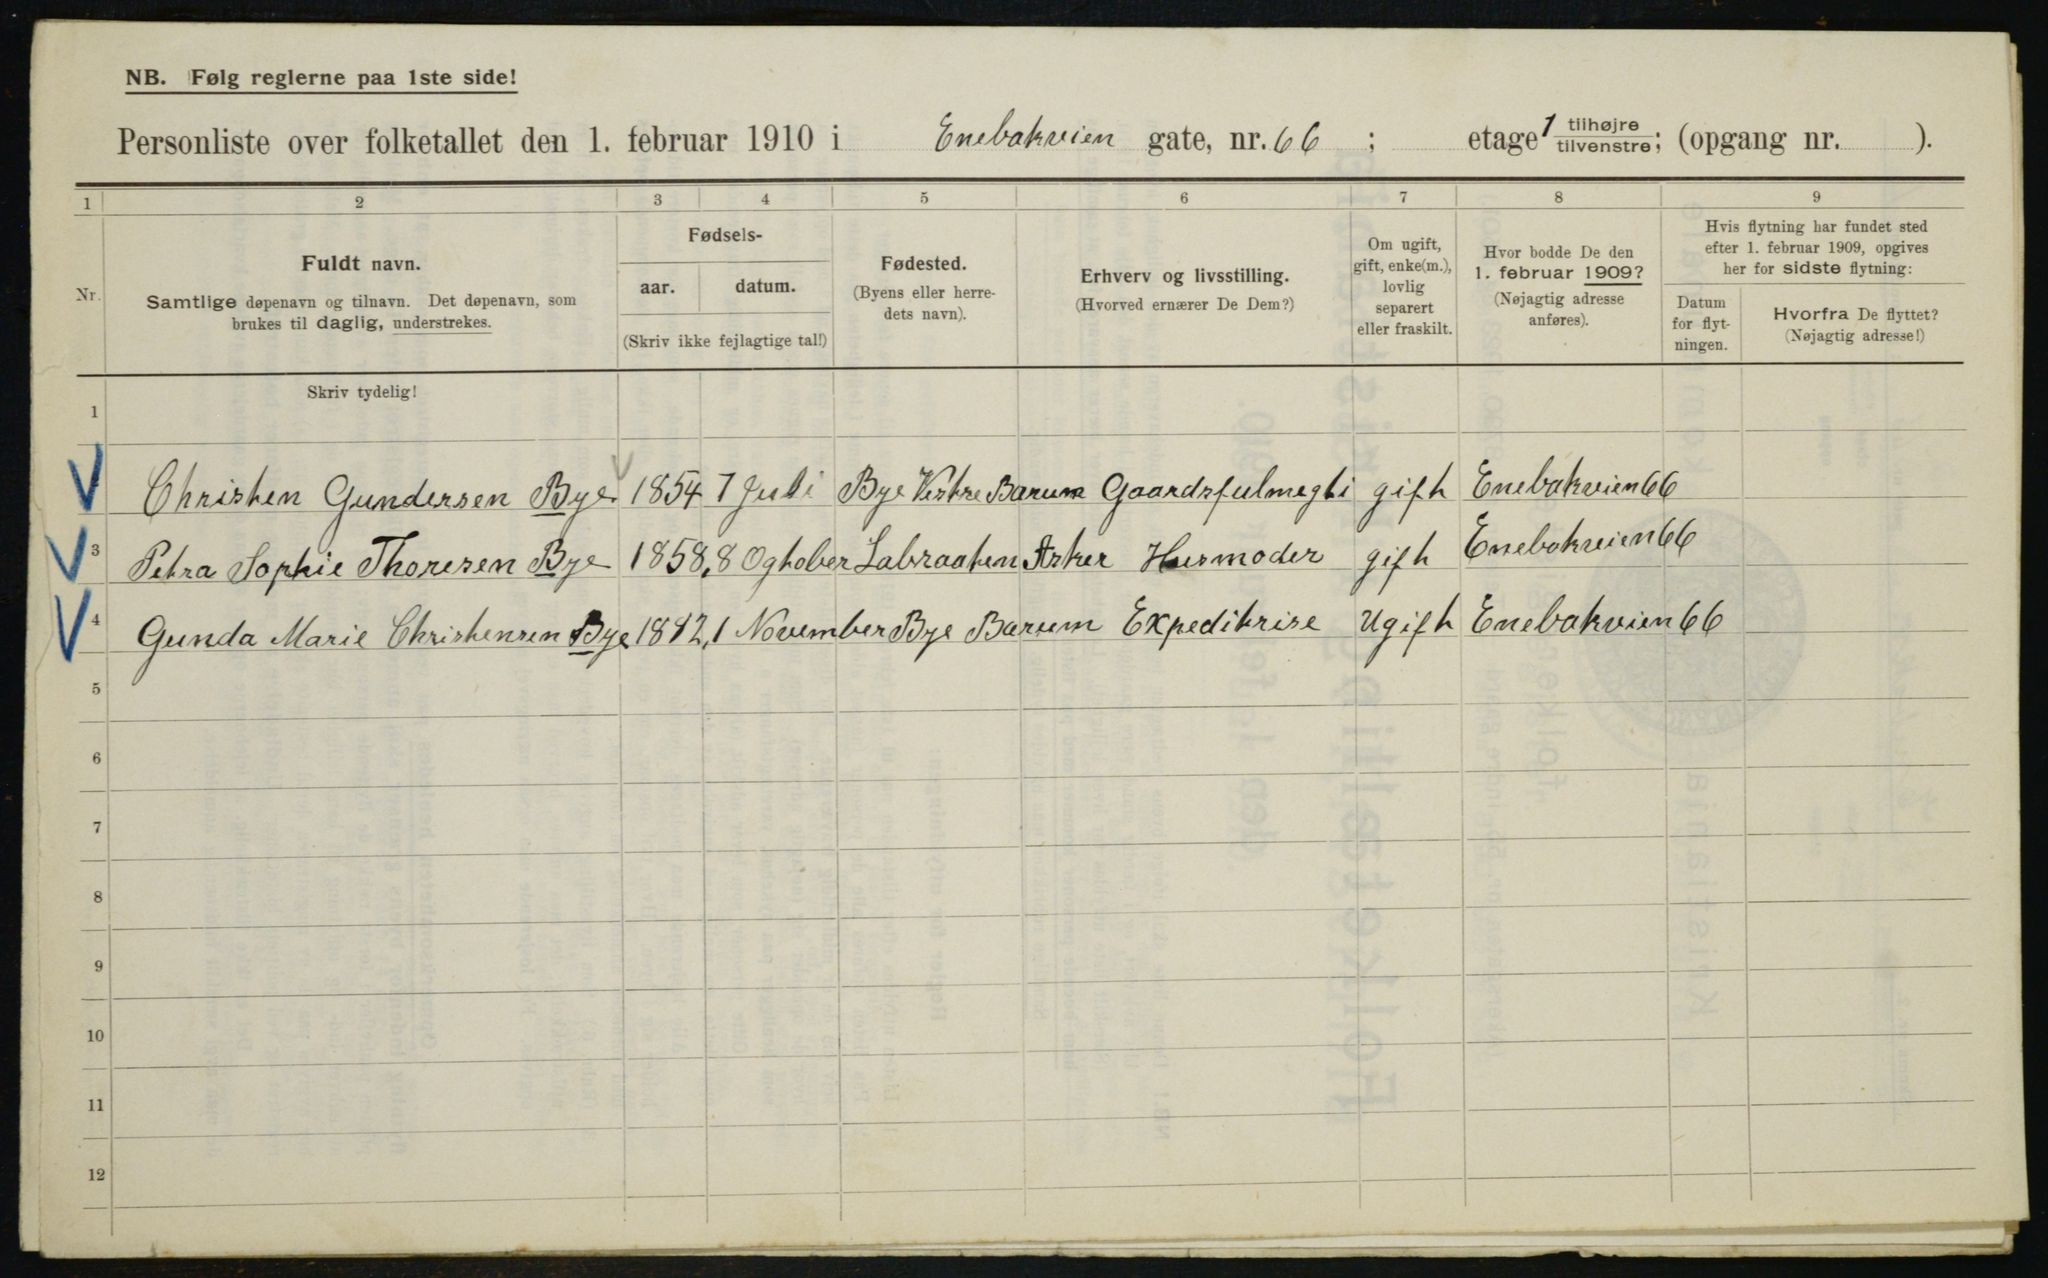 NB. Følg reglerne paa 1ste side!
Personliste over folketallet den 1. februar 1910 i Enebakveien gate, nr. 66 ; etage 1 tilhøjre tilvenstre; (opgang nr. ).
1 2 3 4 5 6 7 8 9
Nr.
Fuldt navn.
Samtlige døpenavn og tilnavn. Det døpenavn, som
brukes til daglig, understrekes.
Fødsels-
aar. datum.
(Skriv ikke fejlagtige tal!)
Fødested.
(Byens eller herre-
dets navn).
Erhverv og livsstilling.
(Hvorved ernærer De Dem?)
Om ugift,
gift, enke(m.),
lovlig
separert
eller fraskilt.
Hvor bodde De den
1. februar 1909?
(Nøjagtig adresse
anføres).
Hvis flytning har fundet sted
efter 1. februar 1909, opgives
her for sidste flytning:
Datum
for flyt-
ningen.
Hvorfra De flyttet?
(Nøjagtig adresse!)
Skriv tydelig!
1
Christen Gundersen Bye 1854 7 Juli Bye Vestre Barum Gaardsfulmegti gift Enebakvien 66
3 Petra Sophie Thoresen Bye 1858, 8 Ogtober Labraaten Asker Husmoder gift Enebakveien 66
4 Gunda Marie Christensen Bye 1 November Bye Barum Expeditrise Ugift Enebakvien 66
5
6
7
8
9
10
11
12